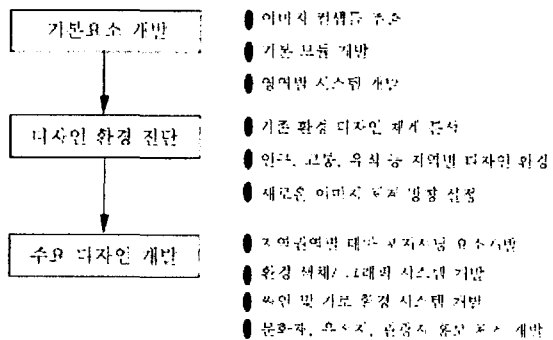 기본요소 개발
이미지 컨셉트 추출
기본 모듈 개발
영역별 시스템 개발
디자인 환경 진단
기존 환경 디자인 체계 분석
인구, 교통, 유적 등 지역별 디자인 환경
새로운 이미지 방향 설정
수요 디자인 개발
지역권역별 요소개발
환경 색채/그래픽 시스템 개발
싸인 및 가로 환경 시스템 개발
문화재, 휴식지, 관광지 개발